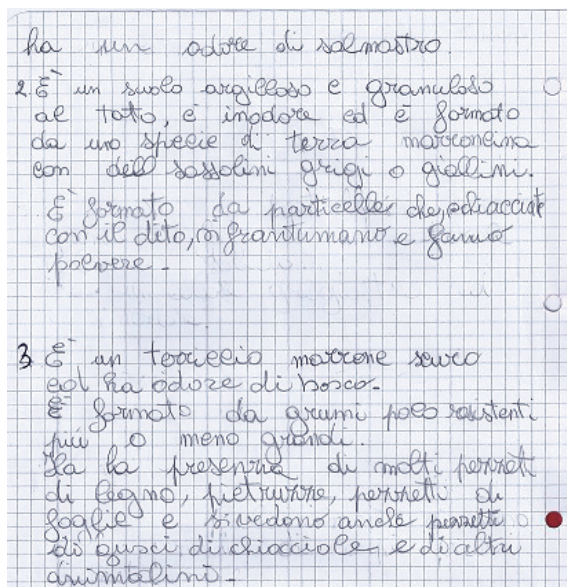 ha un odore di salmastro.
2. È un suolo argilloso e granuloso
al tato, è inodore ed è formato
da uno specie di terra marroncina
con dell sassolini grigi o giallini.
È formato da particelle che, schiacciate
con il dito, si frantumano e fanno
polvere.
3 È un terriccio marrone scuro
ed ha odore di bosco.
È formato da grumi poco resistenti
più o meno grandi.
Ha la presenza di molti pezzetti
di legno, pietruzze, pezzetti di
foglie e si vedono anche pezzetti
di gusci di chiocciole e di altri
animalini.